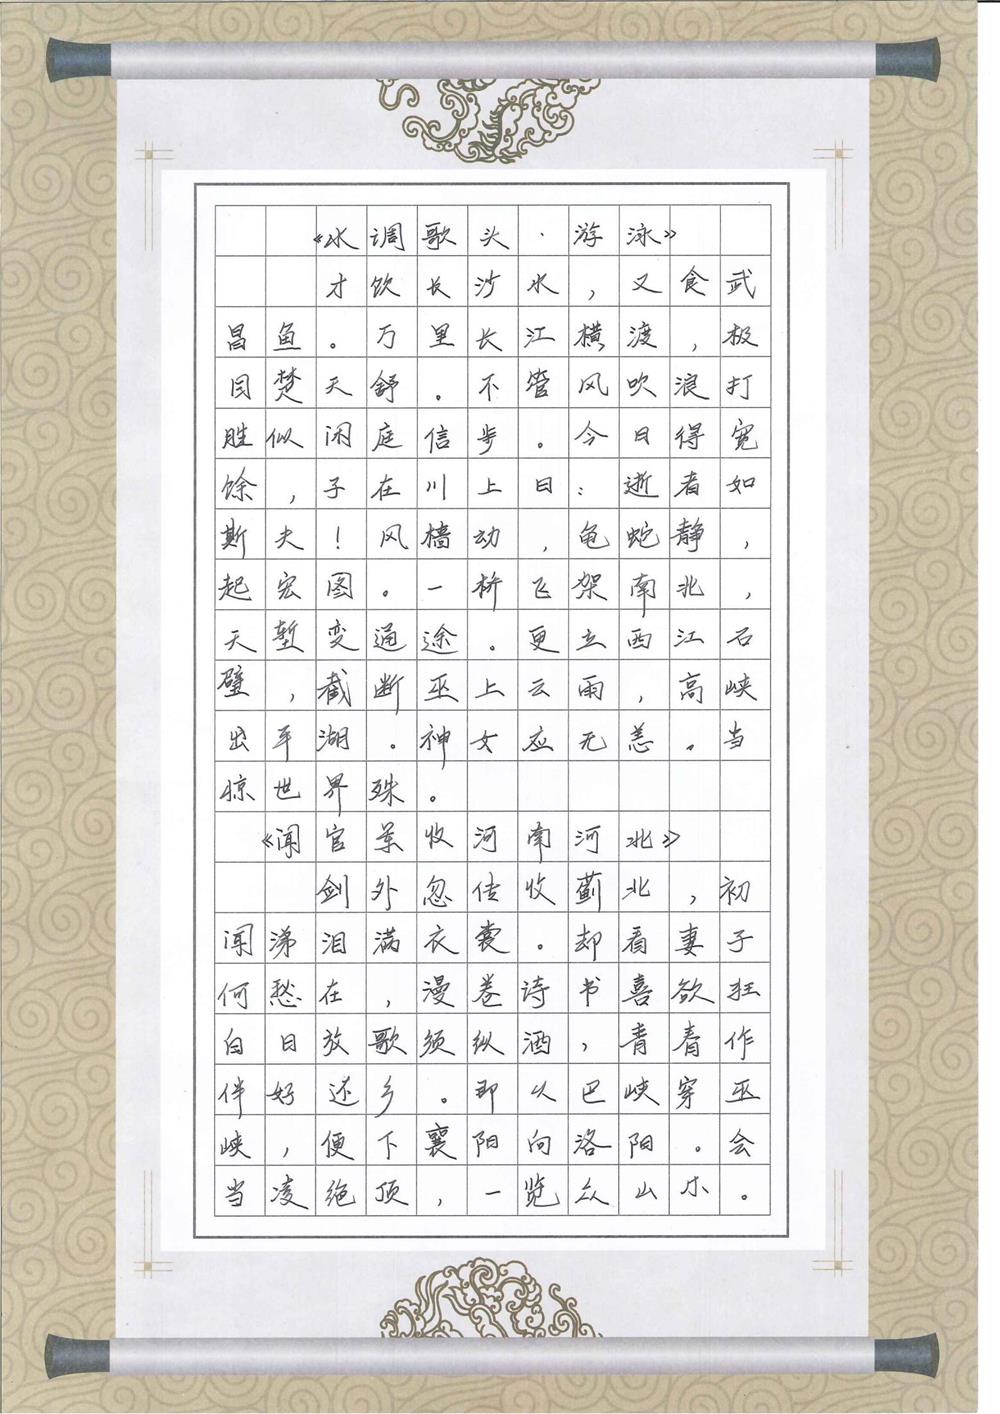 《水调歌头·游泳》
才饮长沙水，又食武
昌鱼。万里长江横渡，极
目楚天舒。不管风吹浪打
胜似闲庭信步。今日得宽
馀，子在川上曰：逝者如
斯夫！风樯动，龟蛇静，
起宏图。一桥飞架南北，
天堑变通途。更立西江石
壁，截断巫上云雨，高峡
出平湖。神女应无恙。当
惊世界殊。
《闻官军收河南河北》
剑外忽传收蓟北，初
闻涕泪满衣裳。却看妻子
何愁在，漫卷诗书喜欲狂
白日放歌须纵酒，青春作
伴好还乡。即从巴峡穿巫
峡，便下襄阳向洛阳。会
当凌绝顶，一览众山小。